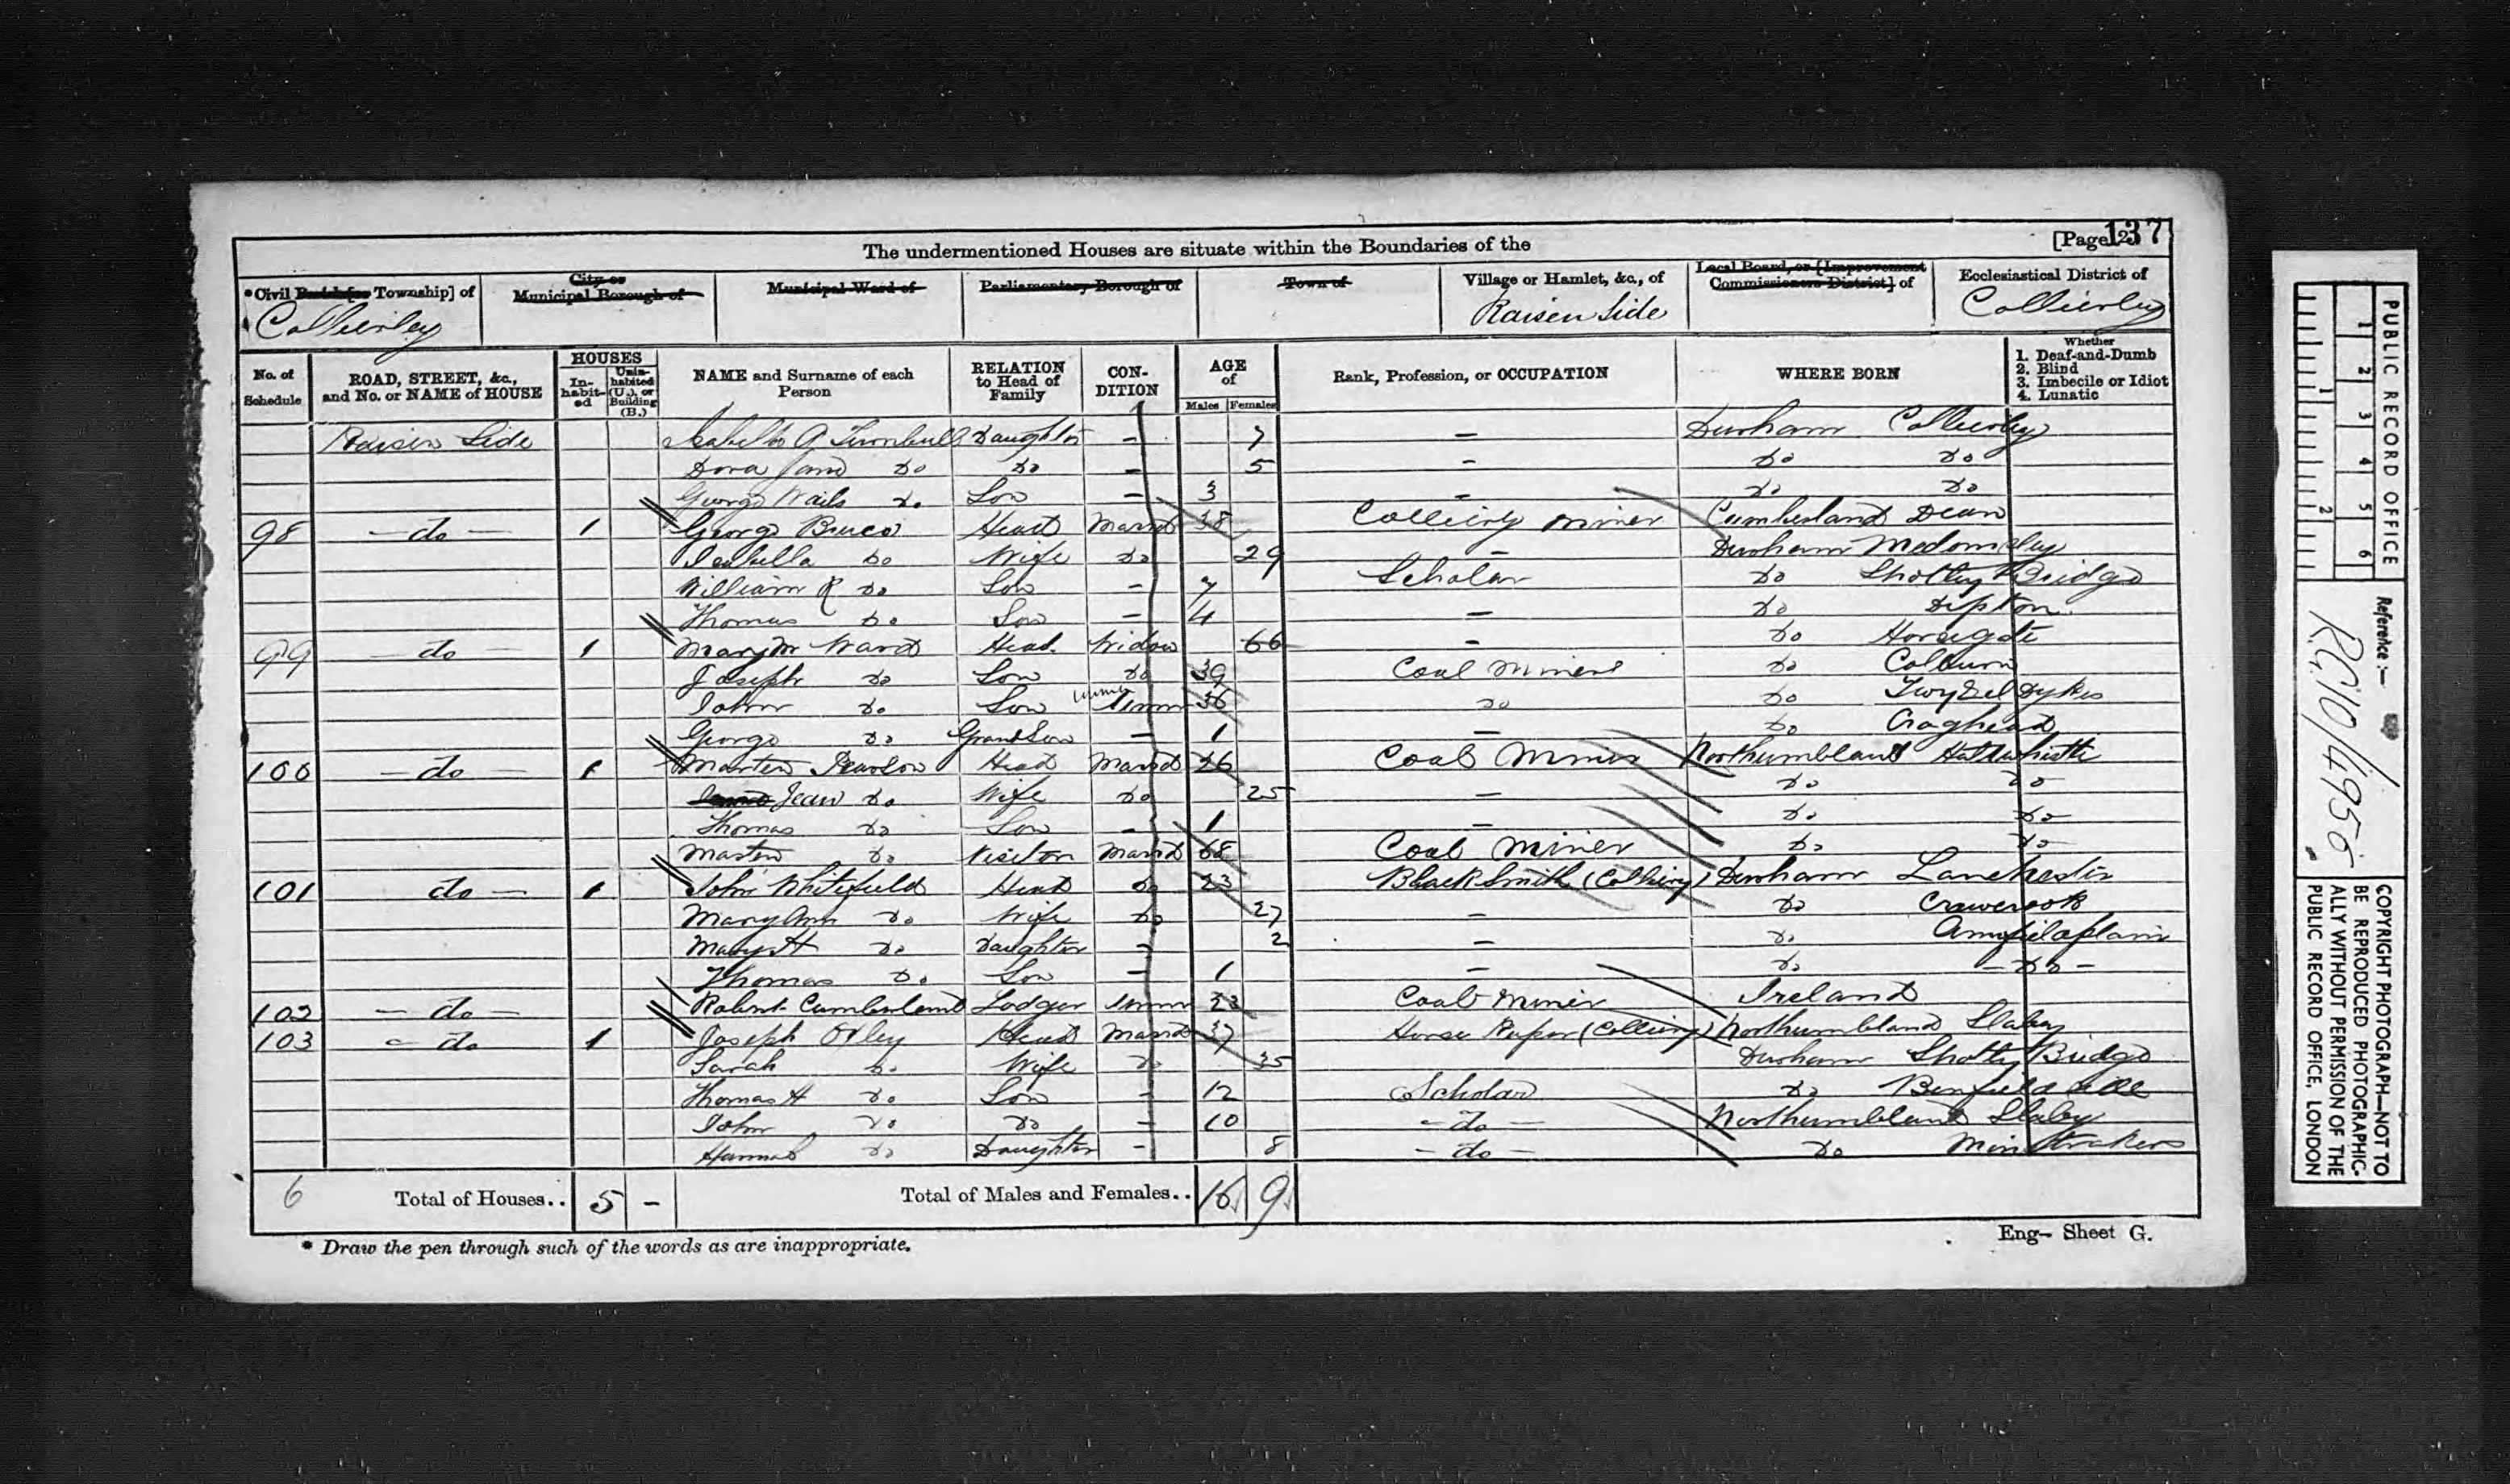 The undermentioned Houses are situate within the Boundaries of the [Page 137]
*Civil Parish [or Township] of City or Municipal Borough of Municipal Ward of Parliamentary Borough of Town of Village or Hamlet, &c., of Local Board, or [Improvement Commissioners District] of Ecclesiastical District of
Collierley Raisen Side Collierley
No. of Schedule ROAD, STREET, &c., and No. or NAME of HOUSE HOUSES In-habit-ed Unin-habited (U.), or Building (B.) NAME and Surname of each Person RELATION to Head of Family CON-DITION AGE of Males Females Rank, Profession, or OCCUPATION WHERE BORN Whether 1. Deaf-and-Dumb 2. Blind 3. Imbecile or Idiot 4. Lunatic
Raisen Side Isabella A Turnbull Daughter - 7 - Durham Collierley
Dora Jane Do Do - 5 - Do Do
George Wails Do Son - 3 - Do Do
98 - do - 1 George Bruce Head Marrd 38 Colliery Miner Cumberland Dean
Isabella Do Wife Do 29 - Durham Medomsley
William R Do Son - 7 Scholar Do Shotley Bridge
Thomas Do Son - 4 - Do Dipton
99 - do - 1 Mary M Ward Head Widow 66 - Do
Joseph Do Son Do 39 Coal Miner Do
John Do Son 36 Do Do Twyzel Dykes
George Do Grand Son - 1 - Do Craghead
100 - do - 1 Marten Pearson Head Marrd 26 Coal Miner Northumbland Haltwhistle
Jean Do Wife Do 25 - Do Do
Thomas Do Son - 1 - Do Do
Marten Do Visitor Marrd 68 Coal Miner Do Do
101 do - 1 John Whitfield Head Do 23 Black Smith (Colliery) Durham Lanchester
Mary Ann Do Wife Do 27 - Do Crawcrook
Mary H Do Daughter - 2 - Do Annfieldplain
Thomas Do Son - 1 - Do - Do -
102 - do - Robert Cumberland Lodger Unmar 23 Coal Miner Ireland
103 - do 1 Joseph Oxley Head Marrd 37 Horse Keeper (Colliery) Northumbland Slaley
Sarah Do Wife Do 35 Durham Shotley Bridge
Thomas H Do Son - 12 Scholar Do Benfield side
John Do Do - 10 - do - Northumbland Slaley
Hannah Do Daughter - 8 - do - Do
6 Total of Houses.. 5 - Total of Males and Females.. 16 9
* Draw the pen through such of the words as are inappropriate.
Eng- Sheet G.
PUBLIC RECORD OFFICE
1 2 3 4 5 6
1 2
Reference :-
RG10/4956
COPYRIGHT PHOTOGRAPH—NOT TO
BE REPRODUCED PHOTOGRAPHIC-
ALLY WITHOUT PERMISSION OF THE
PUBLIC RECORD OFFICE, LONDON